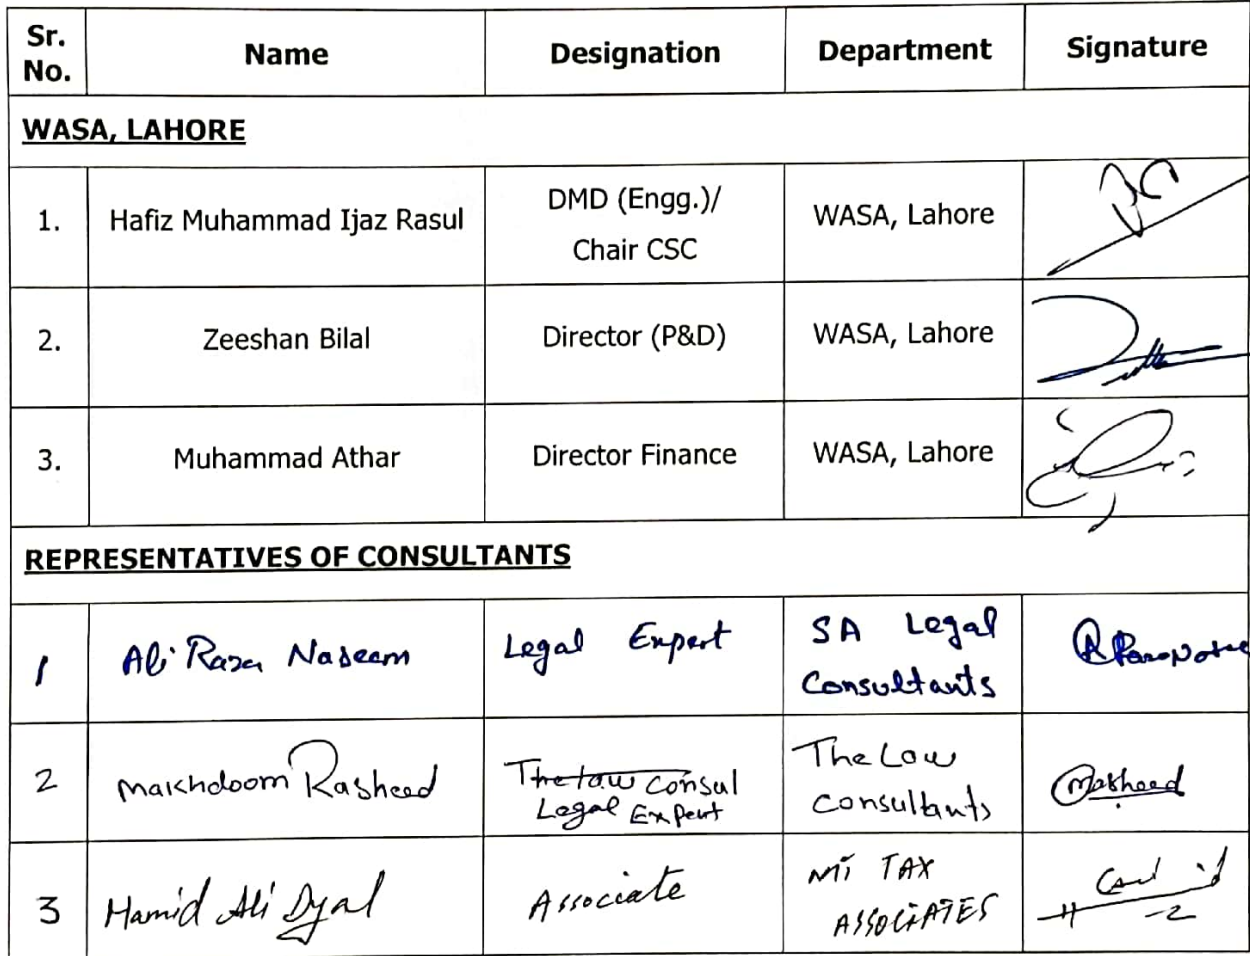 Sr. No. Name Designation Department Signature
WASA, LAHORE
1. Hafiz Muhammad Ijaz Rasul DMD (Engg.)/ Chair CSC WASA, Lahore
2. Zeeshan Bilal Director (P&D) WASA, Lahore
3. Muhammad Athar Director Finance WASA, Lahore
REPRESENTATIVES OF CONSULTANTS
1 Ali Raza Naseem Legal Expert SA Legal Consultants
2 Makhdoom Rasheed The law Consul Legal Expert The Law Consultants Rasheed
3 Hamid Ali Dyal Associate MI TAX ASSOCIATES